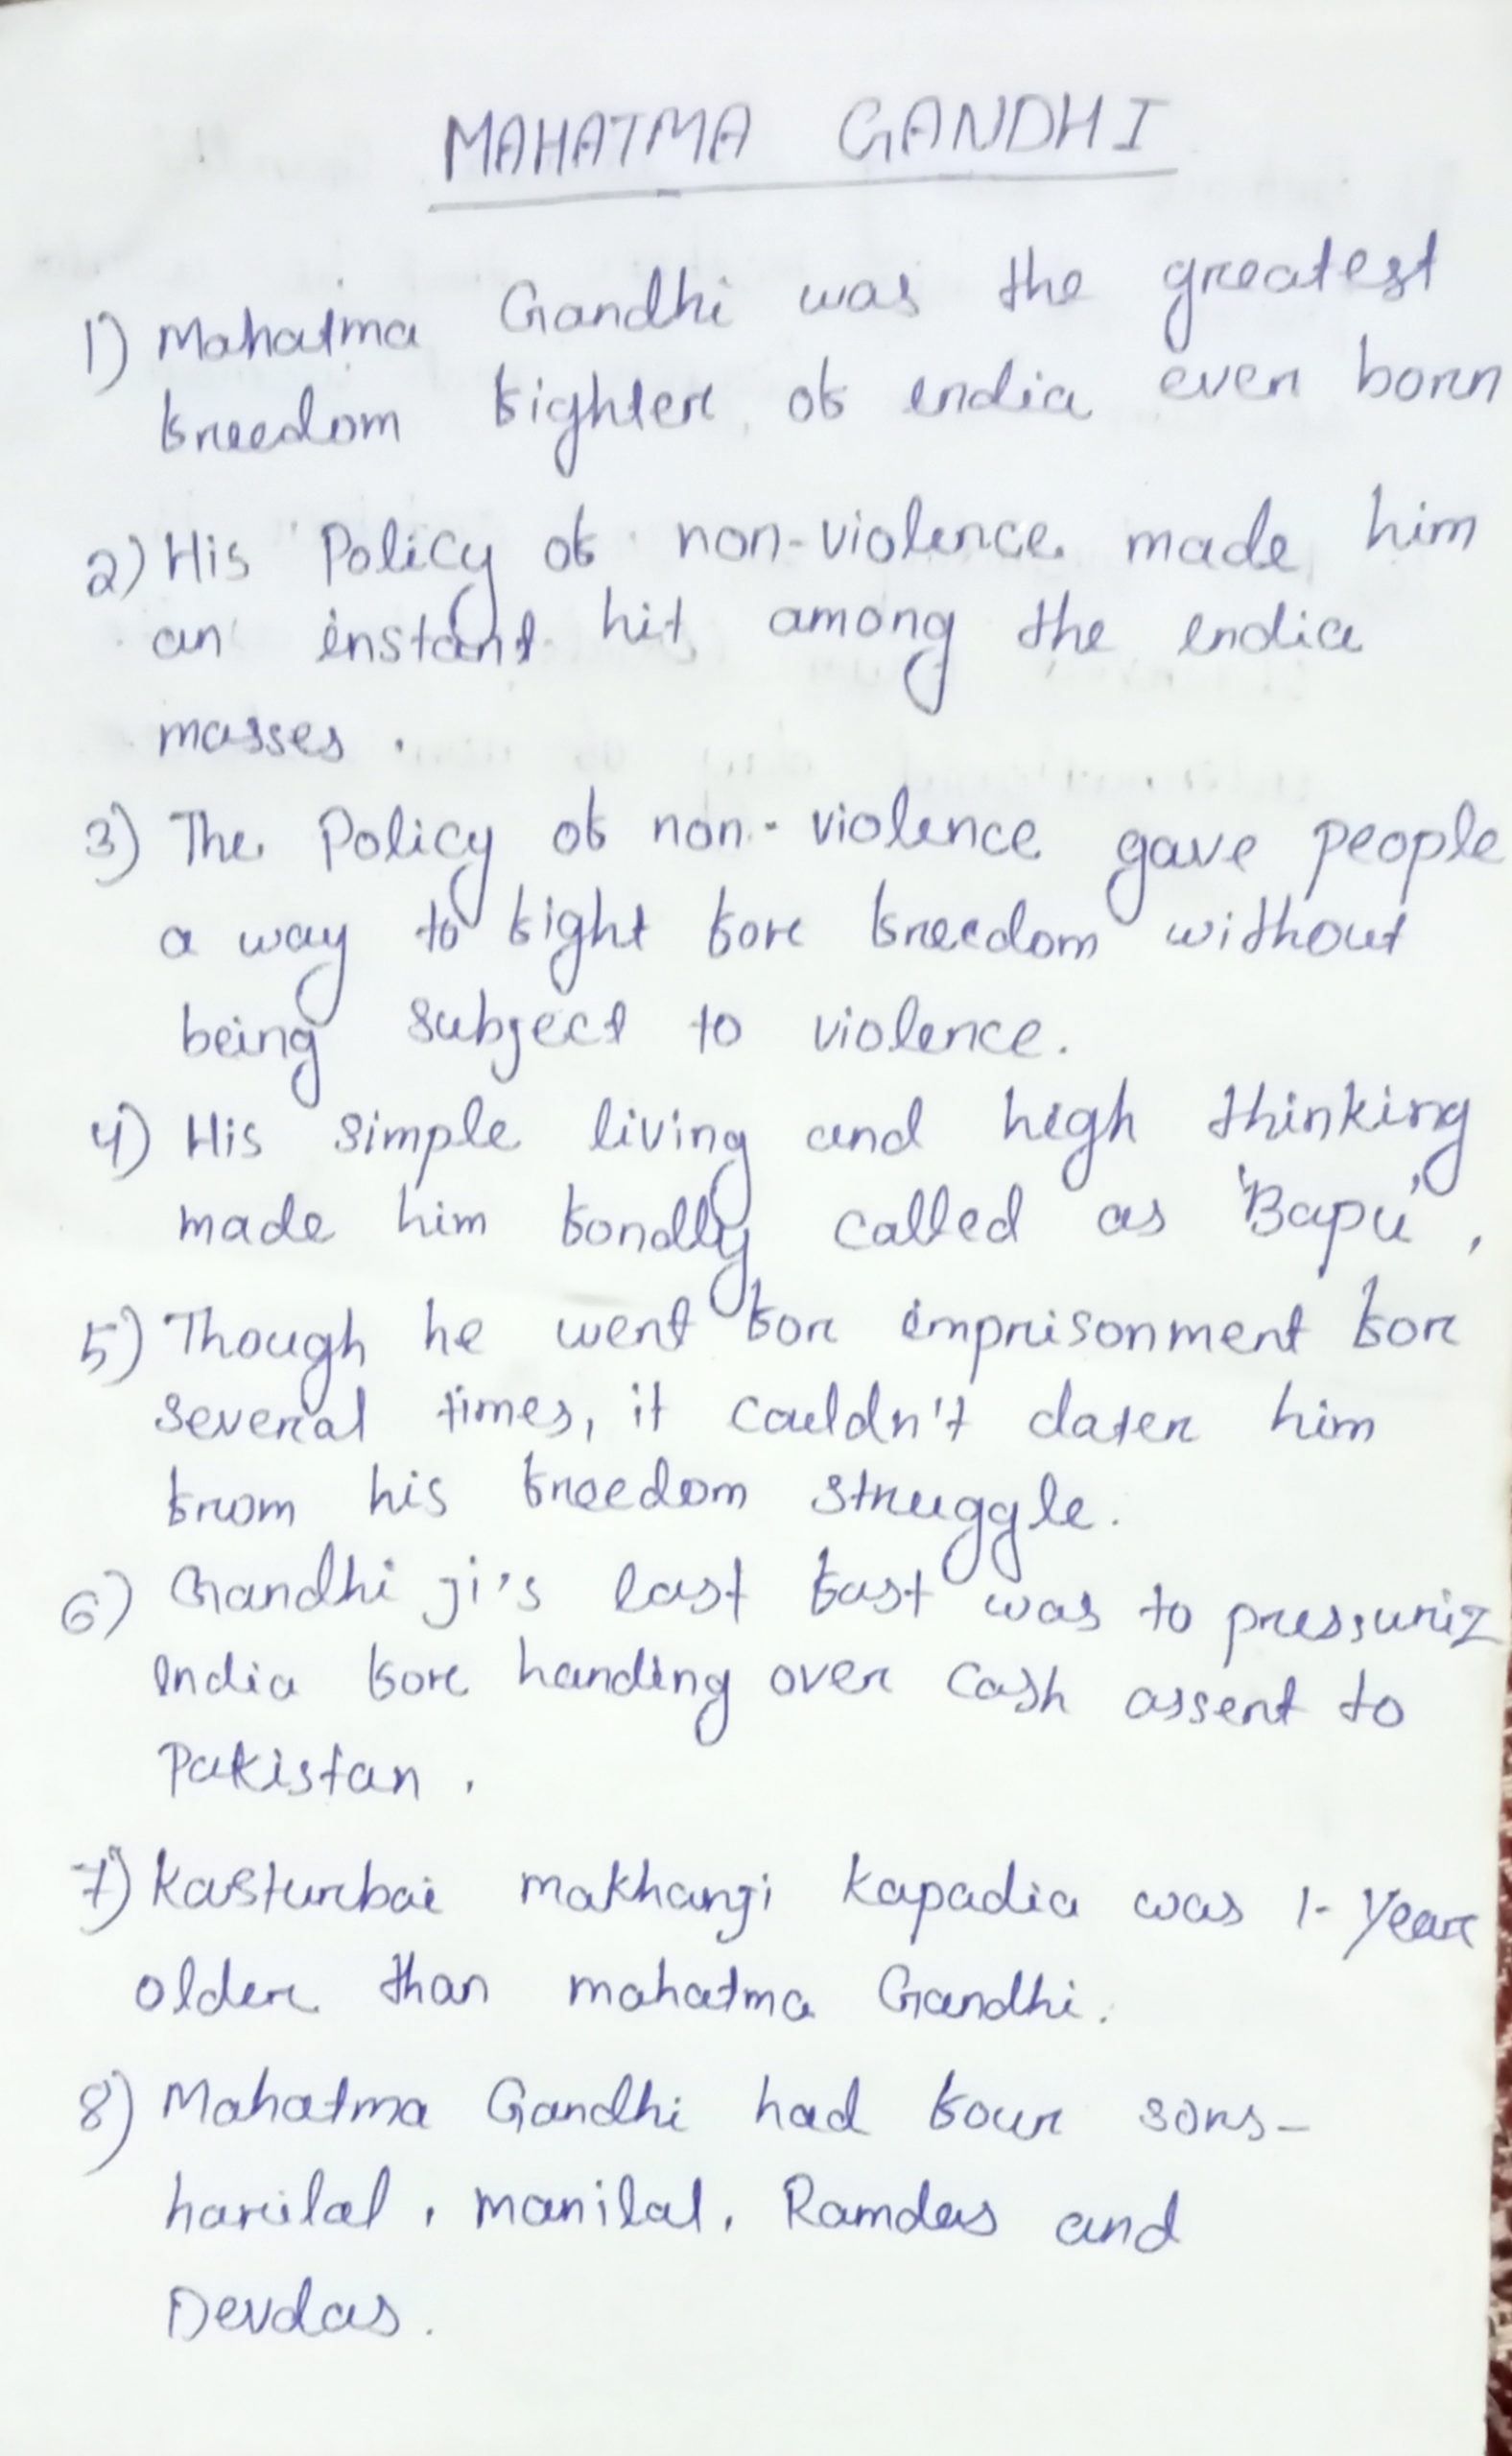 MAHATMA GANDHI
1) Mahatma Gandhi was the greatest
freedom fighter of india ever born
2) His Policy of non-violence made him
an instant hit among the india
masses.
3) The Policy of non-violence gave people
a way to fight for freedom without
being subject to violence.
4) His simple living and high thinking
made him fondly called as 'Bapu',
5) Though he went for imprisonment for
several times, it couldn't dater him
from his freedom struggle.
6) Gandhi ji's last fast was to pressuriz
India for handing over cash assent to
Pakistan.
7) Kasturbai makhanji kapadia was 1-year
older than mahatma Gandhi.
8) Mahatma Gandhi had four sons-
harilal, manilal, Ramdas and
Devdas.